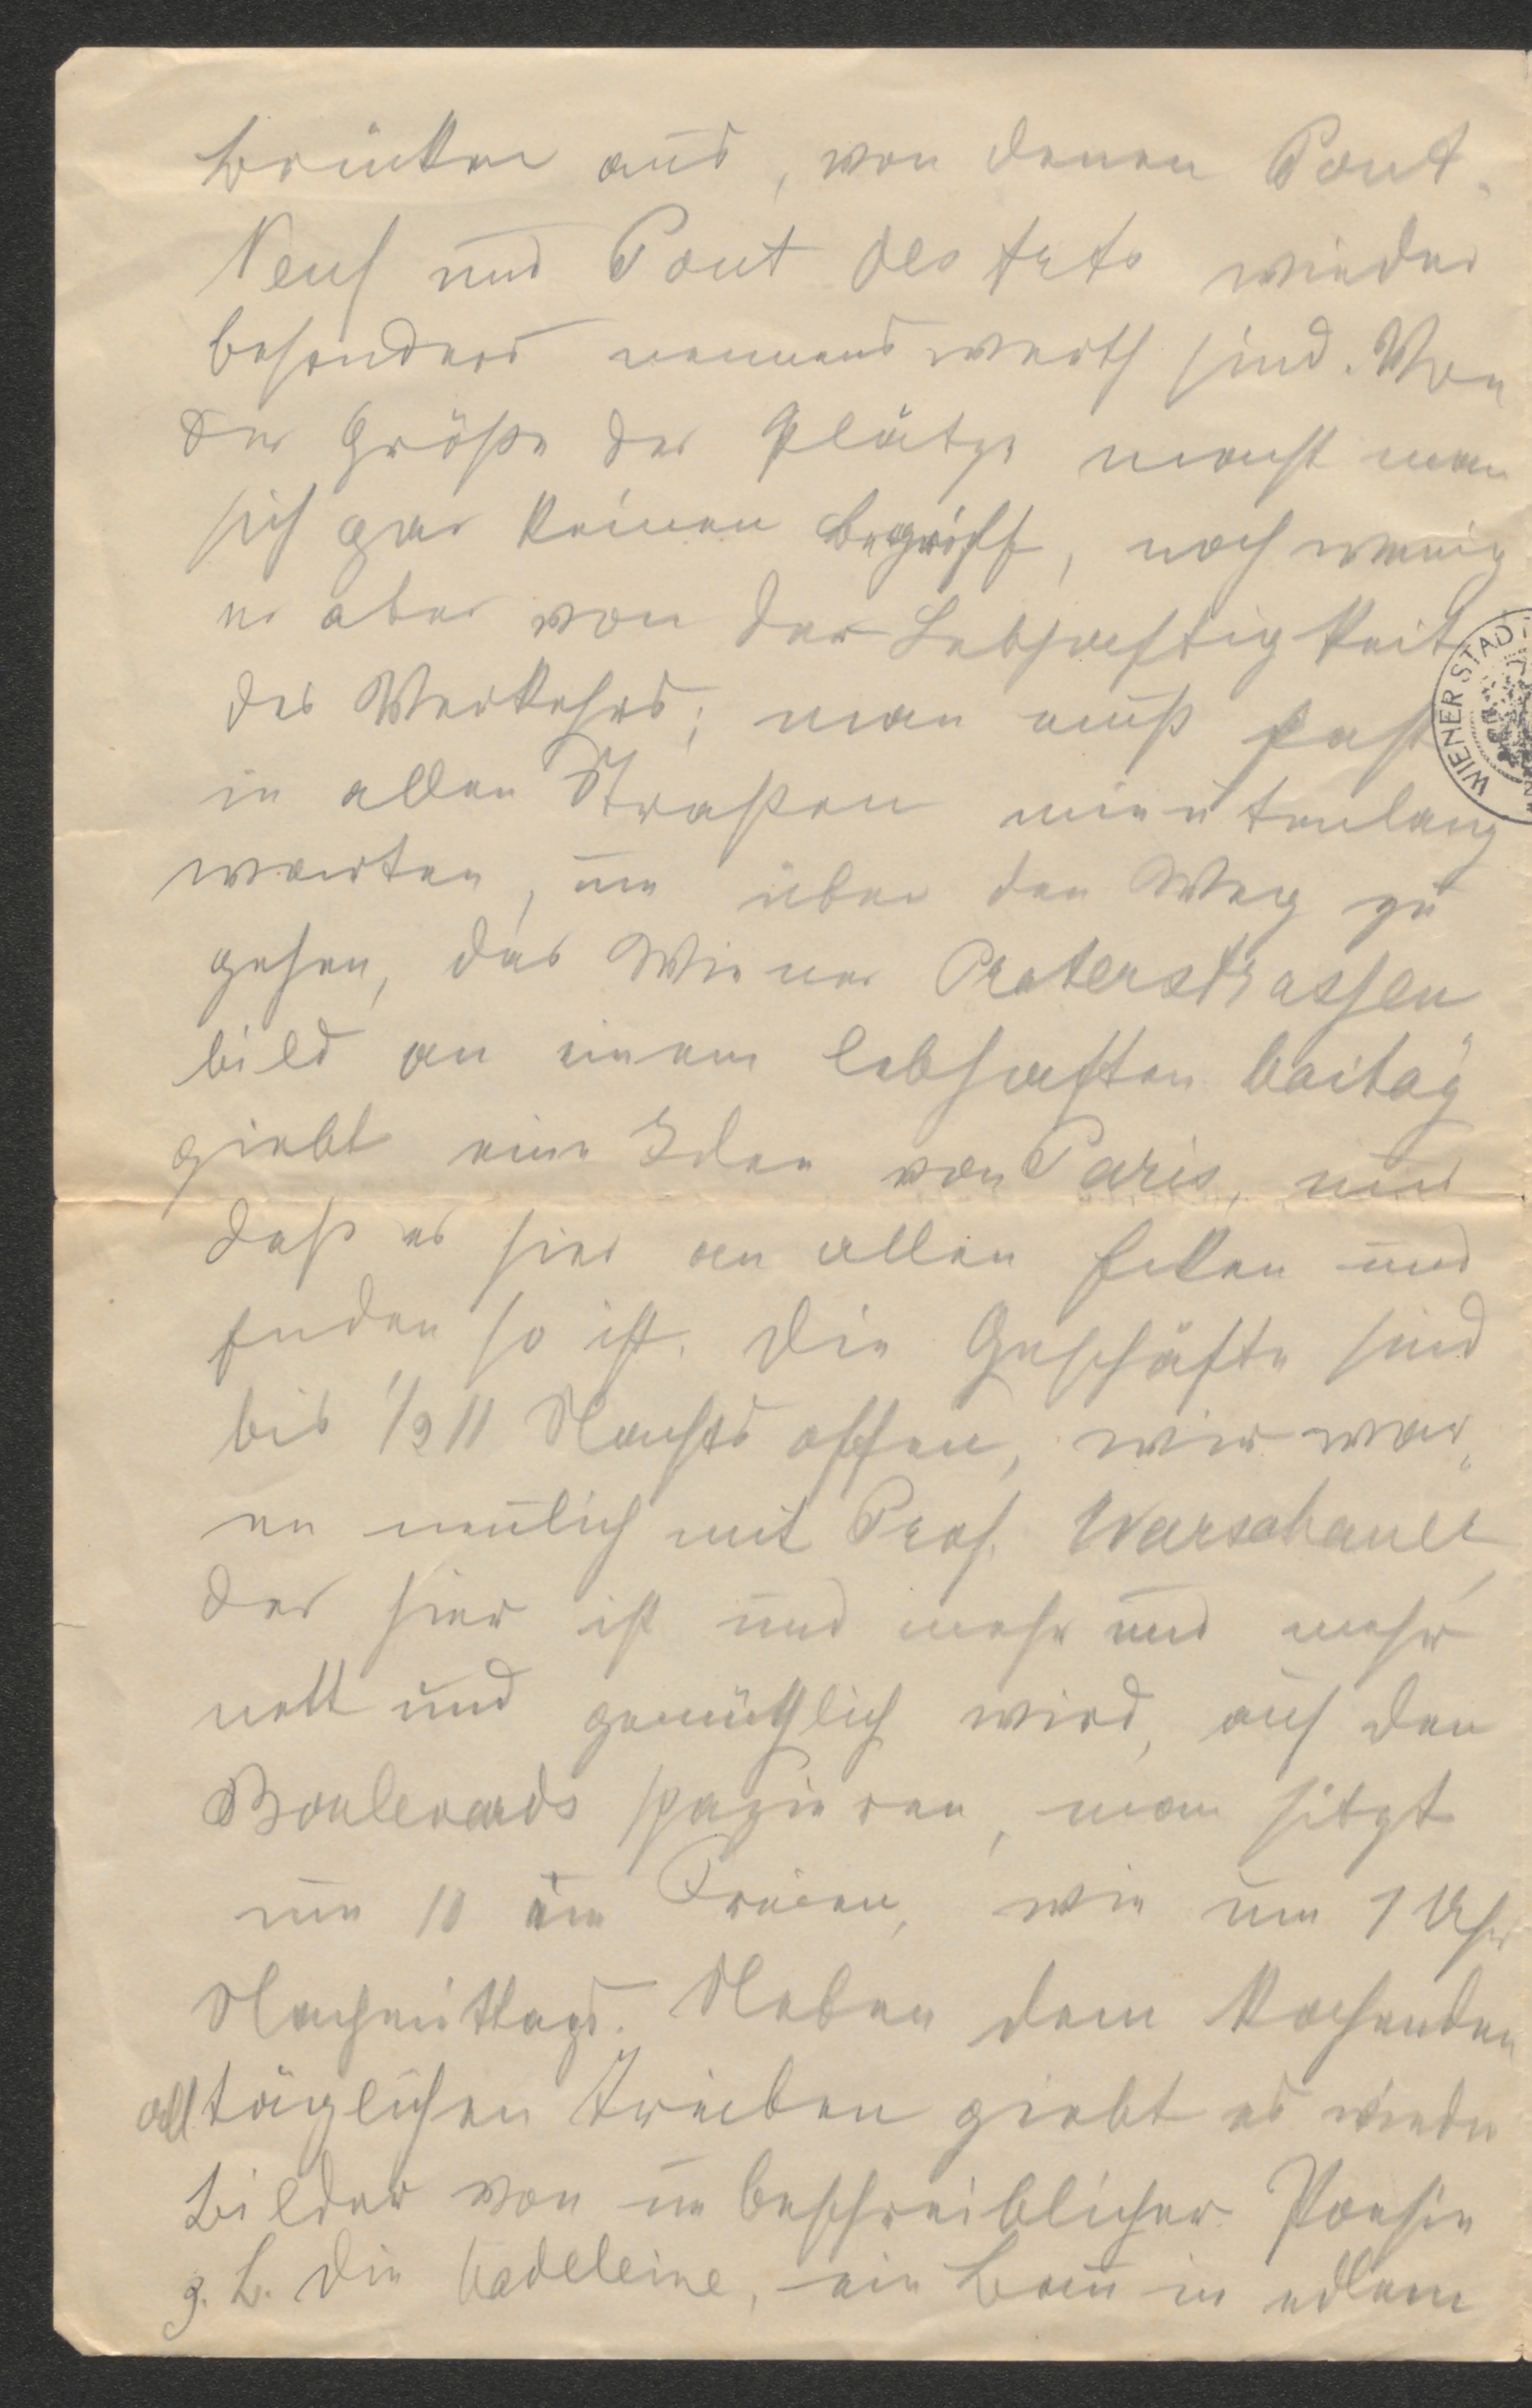 Brücken aus, von denen Pont
Neuf und Pont des Arts wieder
besonders nennenswerth sind. Von
der Größe der Plätze macht man
sich gar keinen Begriff, noch wenig
er aber von der Lebhaftigkeit
des Verkehrs; man muß fast
in allen Straßen minutenlang
warten, um über den Weg zu
gehen, das Wiener Praterstrassen
bild an einem lebhaften Maitag
giebt eine Idee von Paris, nur
daß es hier an allen Ecken und
Enden so ist. Die Geschäfte sind
bis 1/2 11 Nachts offen, wir war
en neulich mit Prof. Warschauer,
der hier ist und mehr und mehr
nett und gemüthlich wird, auf den
Boulevards spazieren, man sitzt
um 10 im Freien, wie um 1 Uhr
Nachmittags. Neben dem kochenden
alltäglichen Treiben giebt es wieder
Bilder von unbeschreiblicher Poesie
z. B. die Madeleine, ein Bau in edlem
WIENER STADT